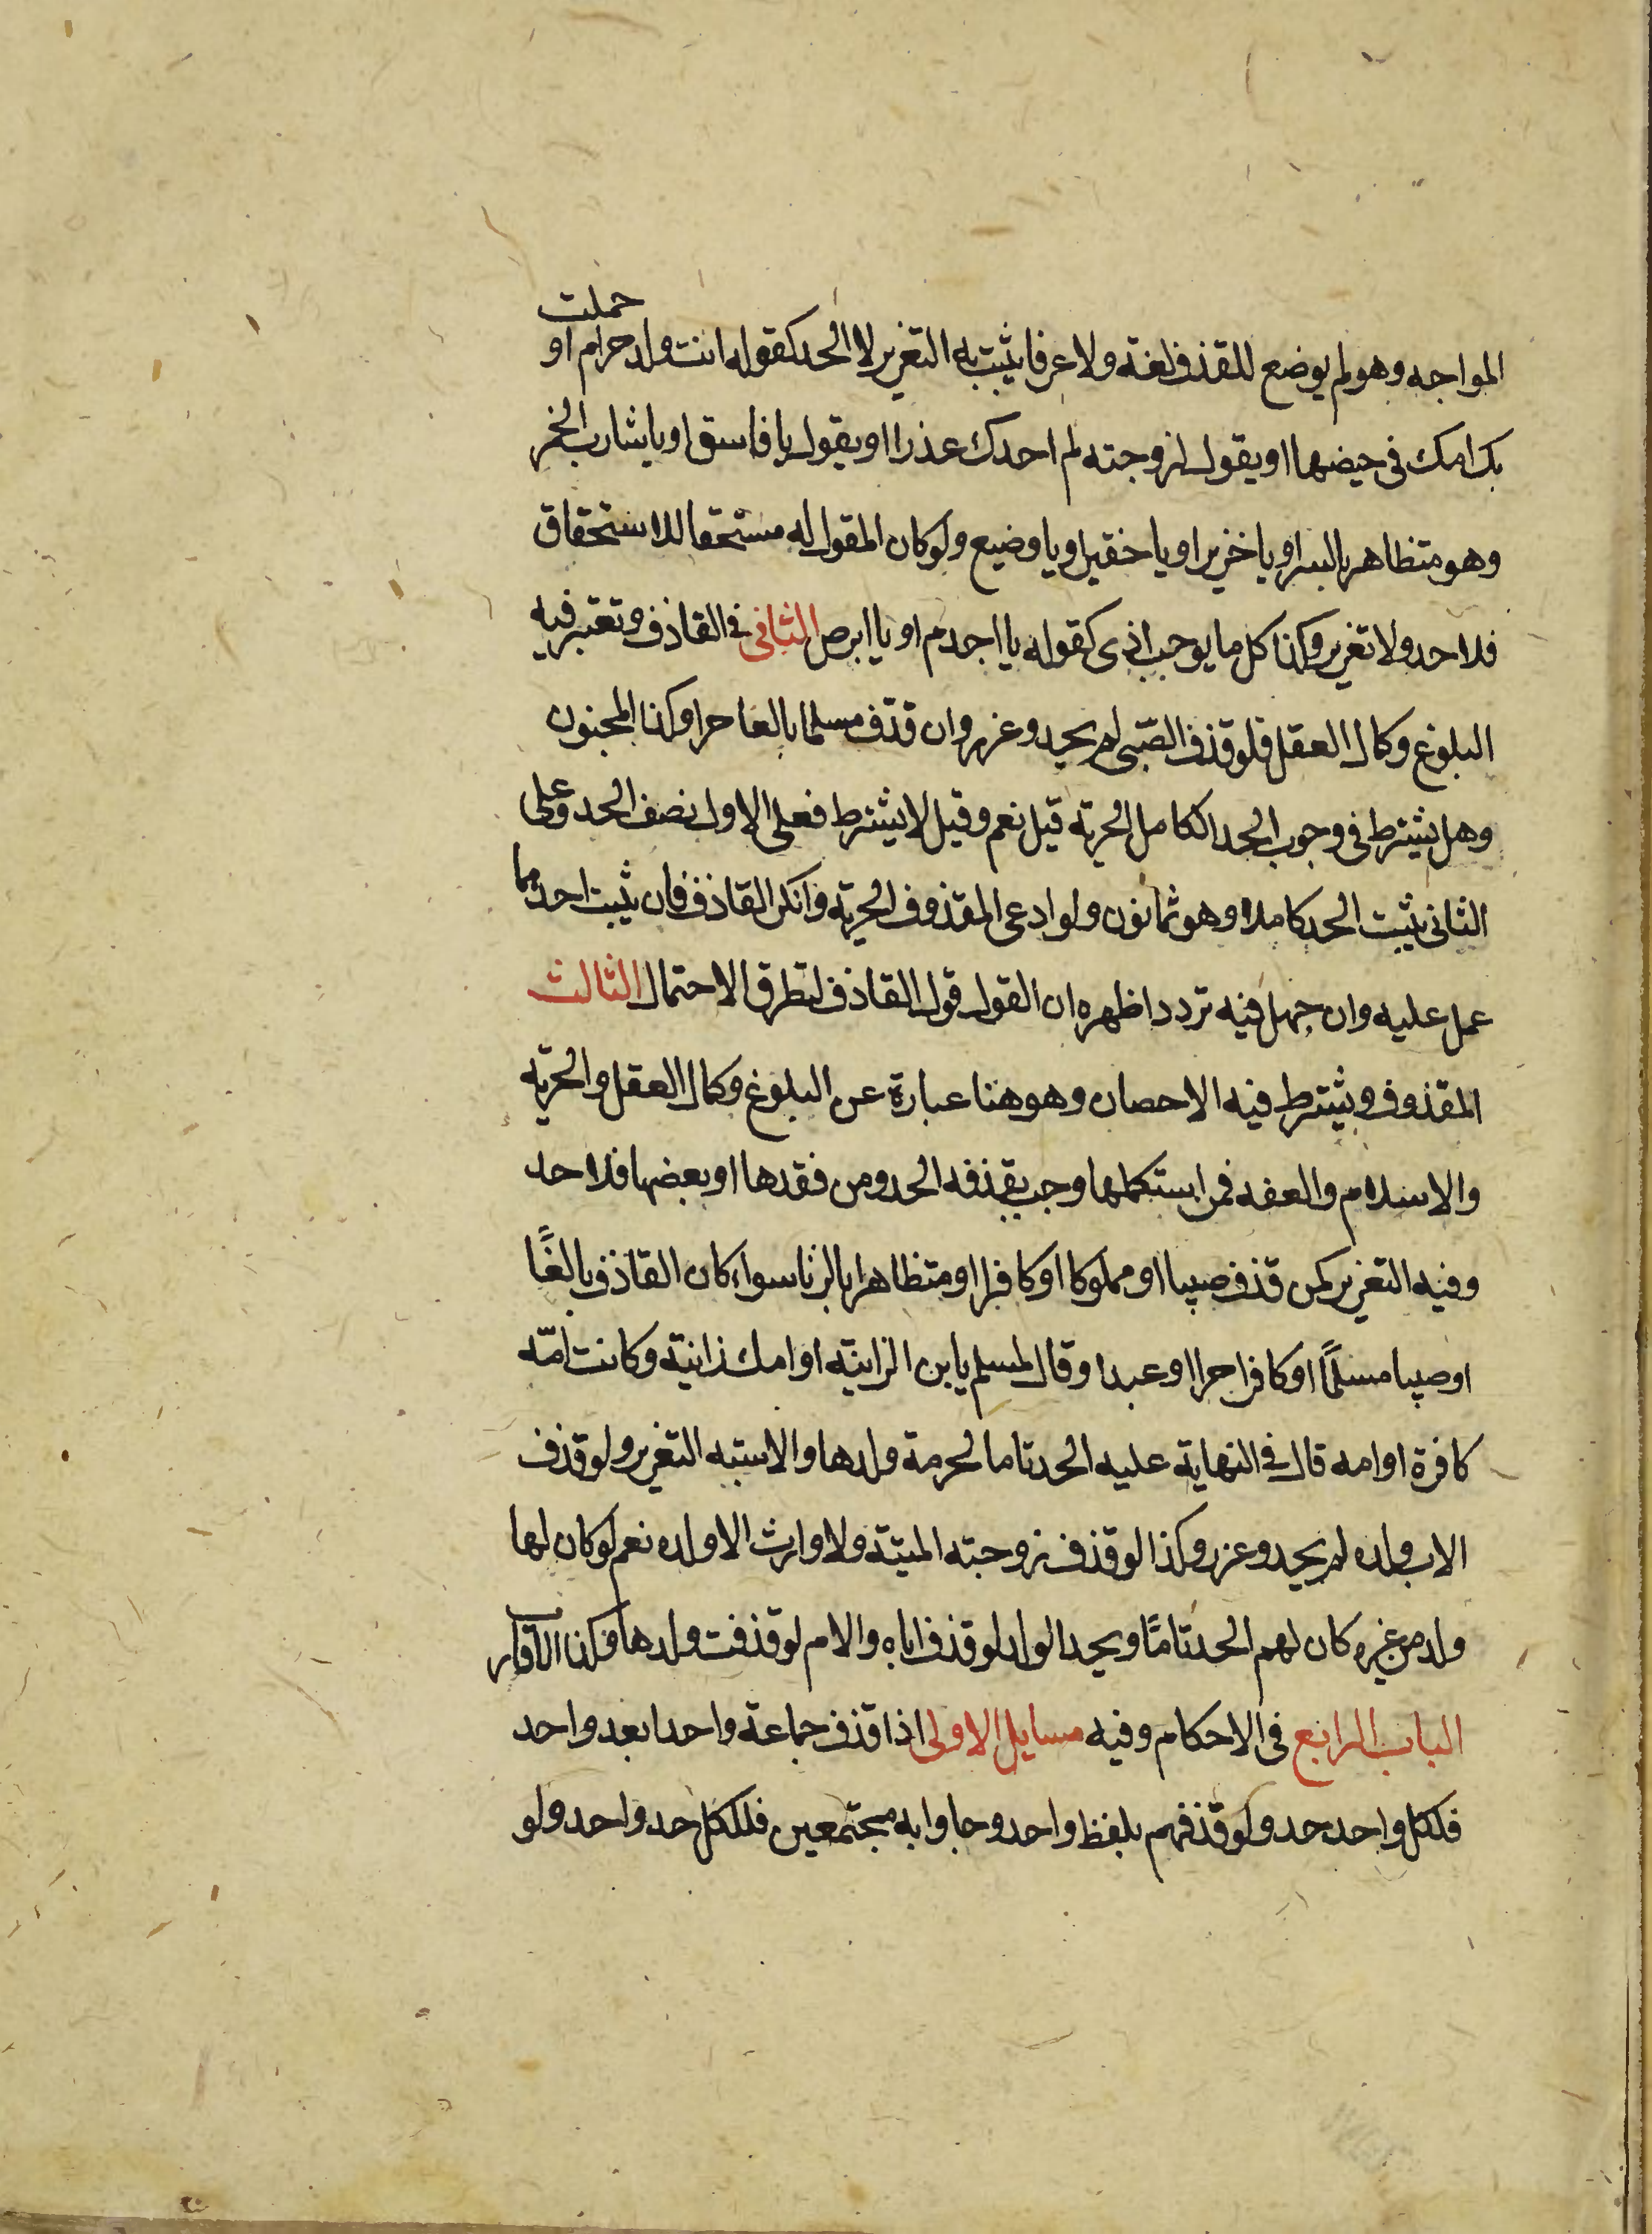 المواجه وهو لم يوضع للقذف لغة ولا عرفا يثبت به التغرير لا الحد كقوله انت ولد حرام او حملت
بك امك فى حيضها او يقول لزوجته لم احدك عذرا او يقول يا فاسق او يا شارب الخمر
وهو متظاهر بالستر او يا خنزير او يا حقير او يا وضيع ولو كان المقول له مستحقا للاستحقاق
فلا حد ولا تغرير وكذا كل ما يوجب اذى كقوله يا اجدم او يا ابرص الثانى فى القاذف وتعتبر فيه
البلوغ وكمال العقل فلو قذف الصّبى لم يحد وعزر وان قذف مسلما بالغا حرا وكذا المجنون
وهل يشترط فى وجوب الحد الكامل الحرية قيل نعم وقيل لا يشترط فعلى الاول نصف الحد وعلى
الثانى يثبت الحد كاملا وهو ثمانون ولو ادعى المقذوف الحرية وانكر القاذف فان ثبت احدهما
عمل عليه وان جهل فيه تردد اظهره ان القول قول القاذف لتطرق الاحتمال الثالث
المقذوف ويشترط فيه الاحصان وهو هنا عبارة عن البلوغ وكمال العقل والحرية
والاسلام والعفه فمن استكملها وجب بقذفه الحد ومن فقدها او بعضها فلا حد
وفيه التغرير كمن قذف صبيا او مملوكا او كافرا او متظاهرا بالزنا سواء كان القاذف بالغًا
او صبيا مسلمًا او كافرا حرا او عبدا وقال لمسلم يا بن الزانية او امك زانية وكانت امّه
كافرة او امه قال فى النهاية عليه الحد تاما لحرمة ولدها والاشبه التغرير ولو قذف
الاب ولده لم يحد وعزر وكذا لو قذف زوجته الميتة ولا وارث الا ولده نعم لو كان لها
ولد من غيره كان لهم الحد تامًا ويحد الولد لو قذف اباه والام لو قذفت ولدها وكذا الاقارب
الباب الرابع فى الاحكام وفيه مسايل الاولى اذا قذف جماعة واحدا بعد واحد
فلكل واحد حد ولو قذفهم بلفظ واحد وجاوا به مجتمعين فللكل حد واحد ولو